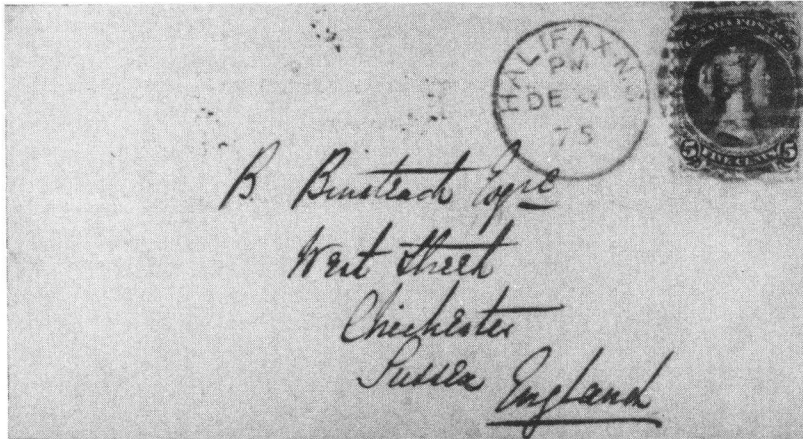 HALIFAX N.S
PM
DE
75
CANADA POSTAGE
5 FIVE CENTS 5
B. Binstead Esqre
West Street
Chichester
Sussex England